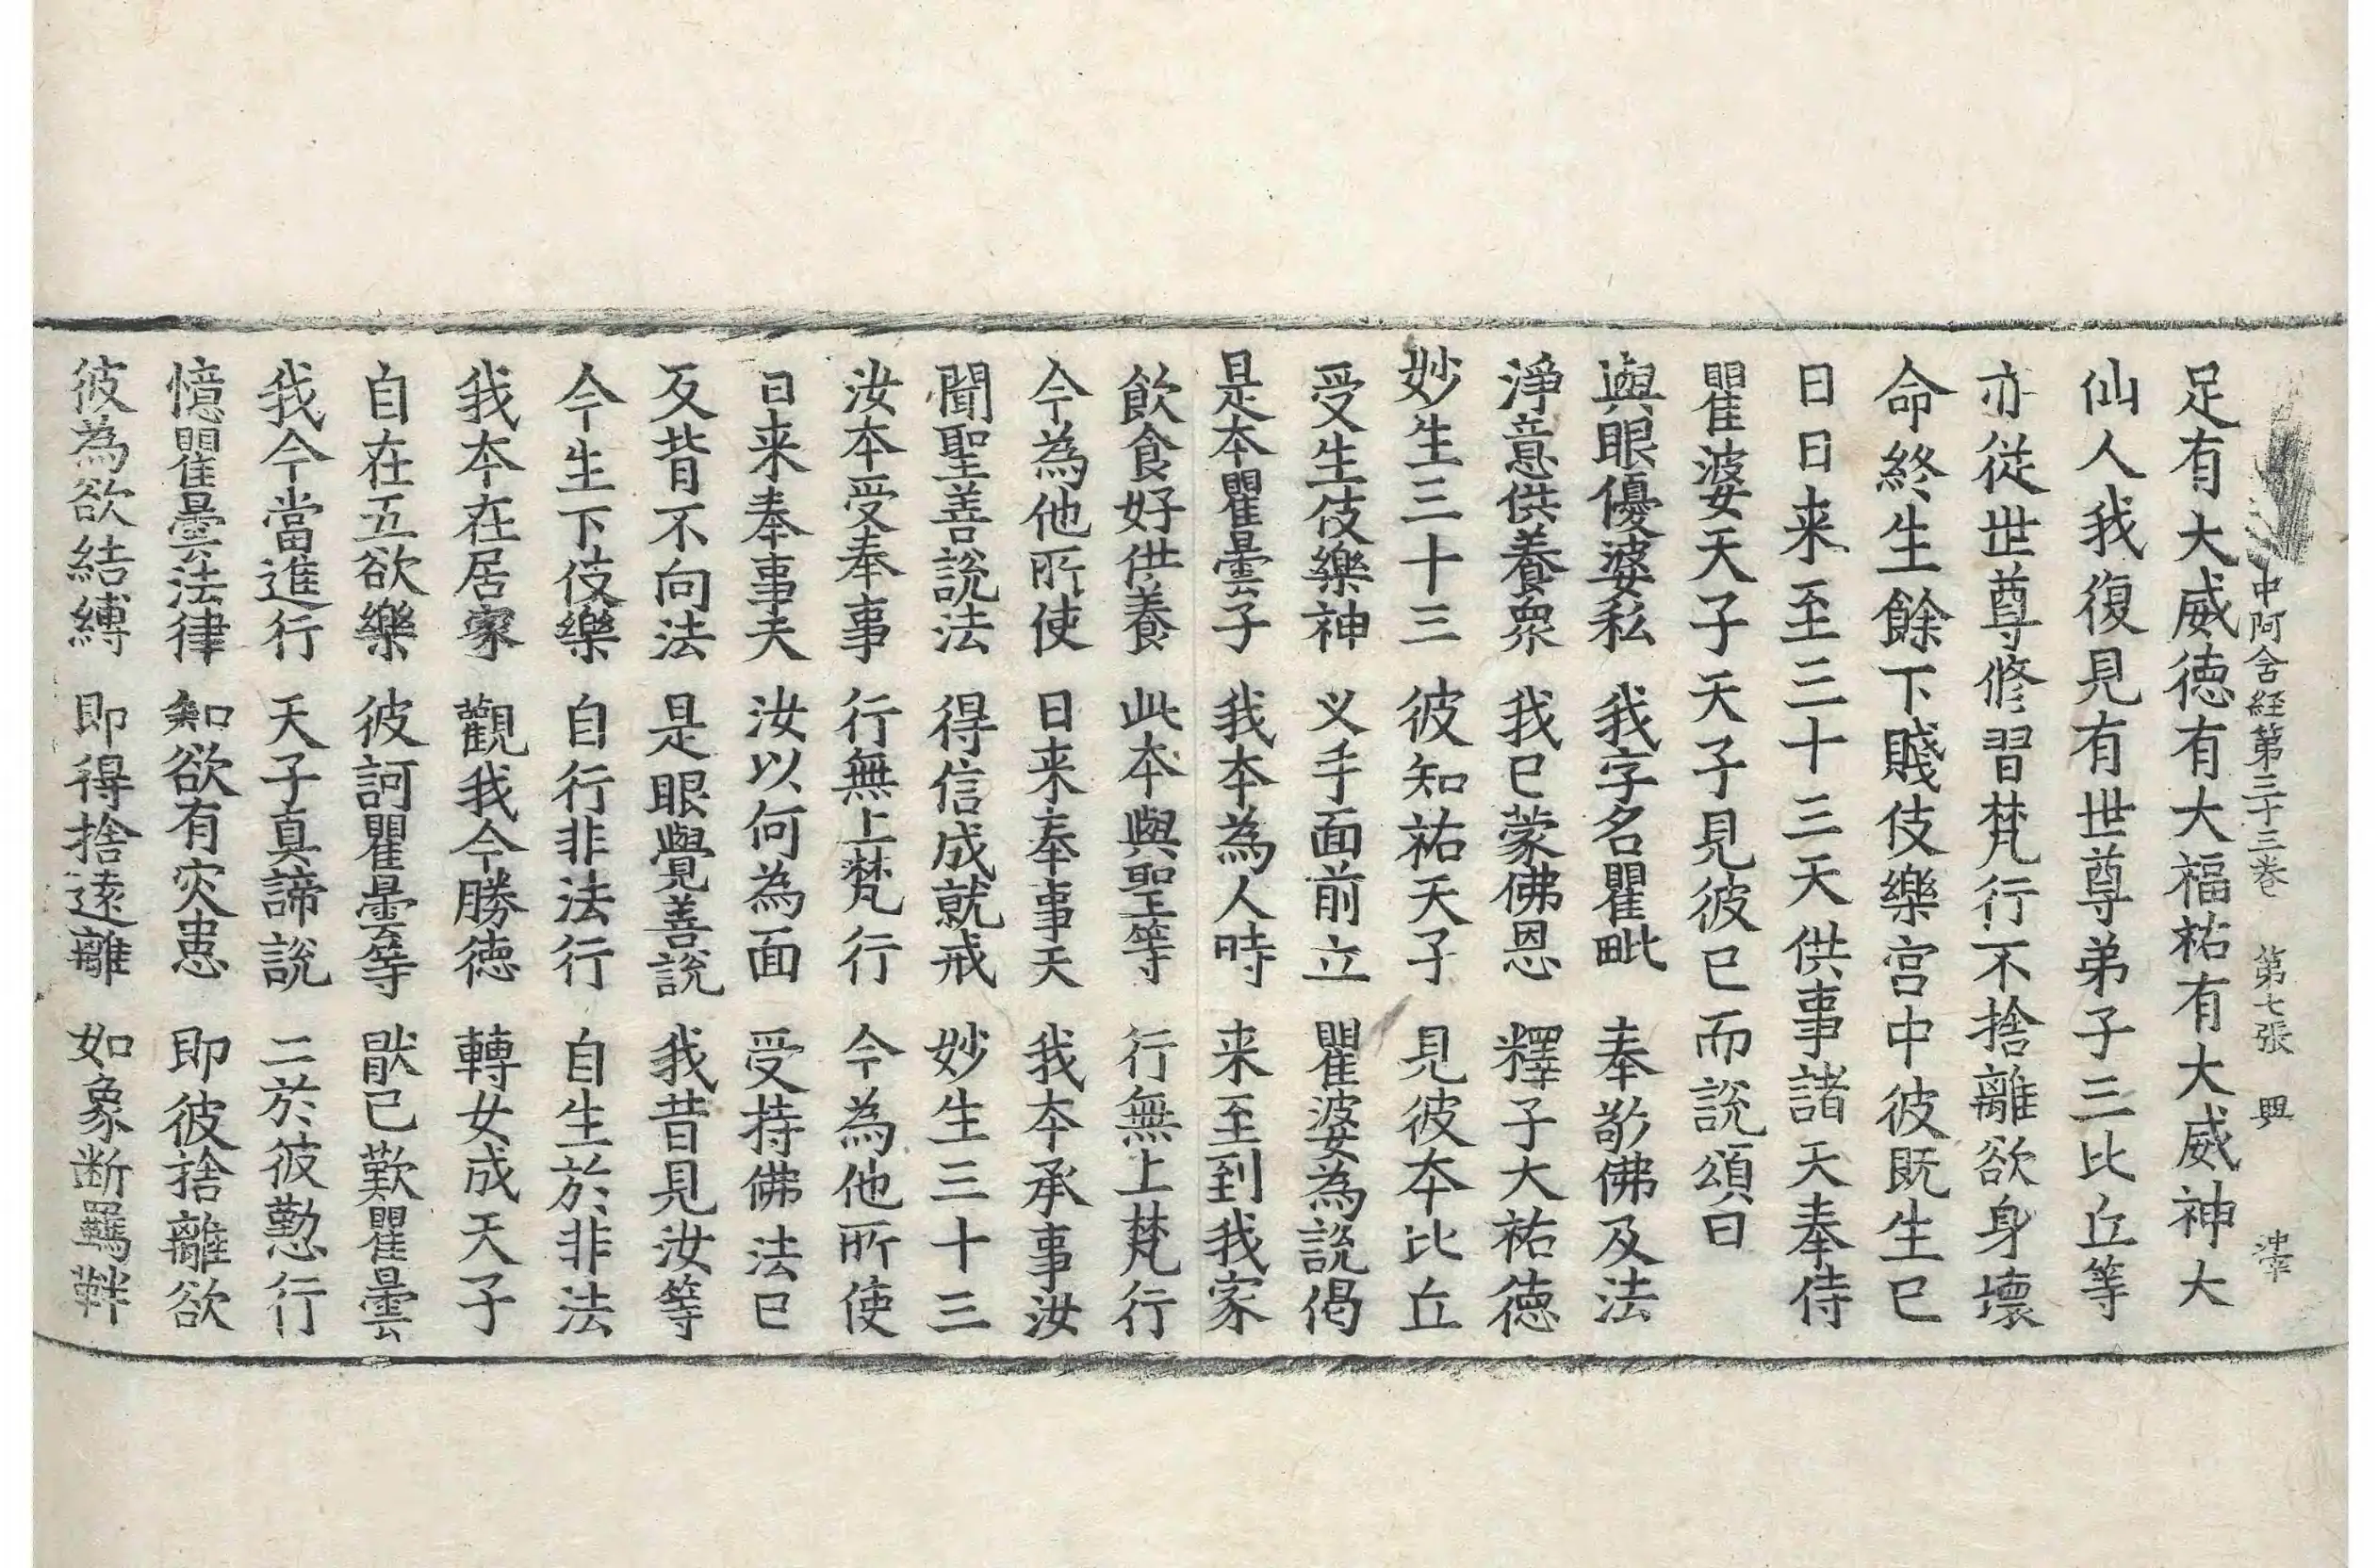 中阿含経第三十三巻 第七張 興
足有大威徳有大福祐有大威神大
仙人我復見有世尊弟子三比丘等
亦従世尊修習梵行不捨離欲身壞
命終生餘下賤伎樂宮中彼既生已
日日来至三十三天供事諸天奉侍
瞿婆天子天子見彼已而説頌曰
與眼優婆私 我字名瞿毗 奉敬佛及法
淨意供養衆 我已蒙佛恩 釋子大祐徳
妙生三十三 彼知祐天子 見彼夲比丘
受生伎樂神 义手面前立 瞿婆為説偈
是夲瞿曇子 我夲為人時 来至到我家
飲食好供養 此夲與聖等 行無上梵行
今為他所使 日来奉事天 我夲承事汝
聞聖善説法 得信成就戒 妙生三十三
汝夲受奉事 行無上梵行 今為他所使
日来奉事夫 汝以何為面 受持佛法已
反背不向法 是眼覺善説 我昔見汝等
今生下伎樂 自行非法行 自生於非法
我夲在居家 觀我今勝徳 轉女成天子
自在五欲樂 彼訶瞿曇等 猒已歎瞿曇
我今當進行 天子真諦説 二於彼懃行
憶瞿曇法律 知欲有灾患 即彼捨離欲
彼為欲結縛 即得捨遠離 如象断羈靽